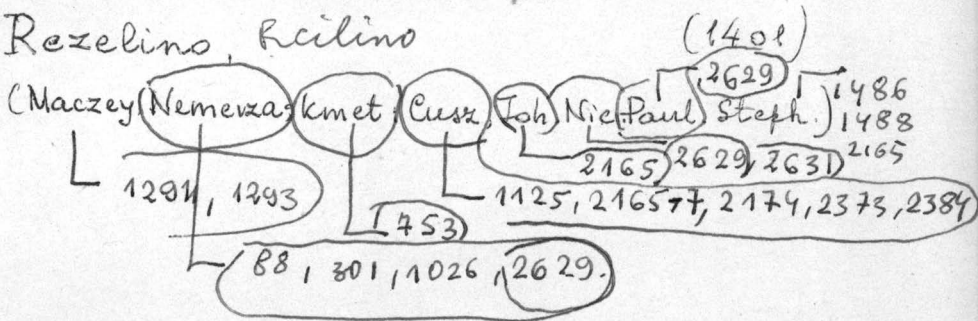 Rezelino, Rcilino
(1401)
2629
(Maczey, Nemerza, kmet, Cusz, Joh, Nic, Paul, Steph.) 1486
1488
2165, 2629, 2631, 2165
1291, 1293
1125, 2165-7, 2174, 2373, 2384
753
88, 301, 1026, 2629.